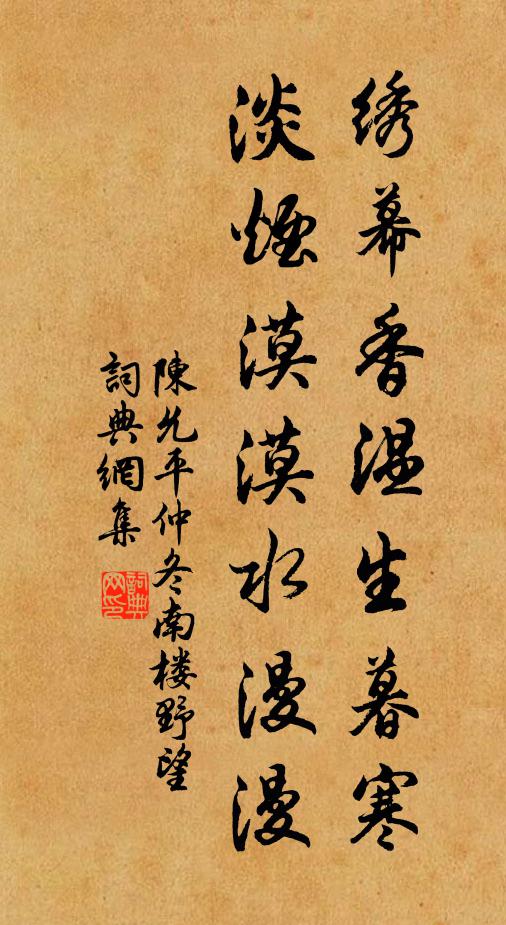 绣幕香温生暮寒
淡烟漠漠水漫漫
陳允平仲冬南楼野望
詞典網集
詞典
网印